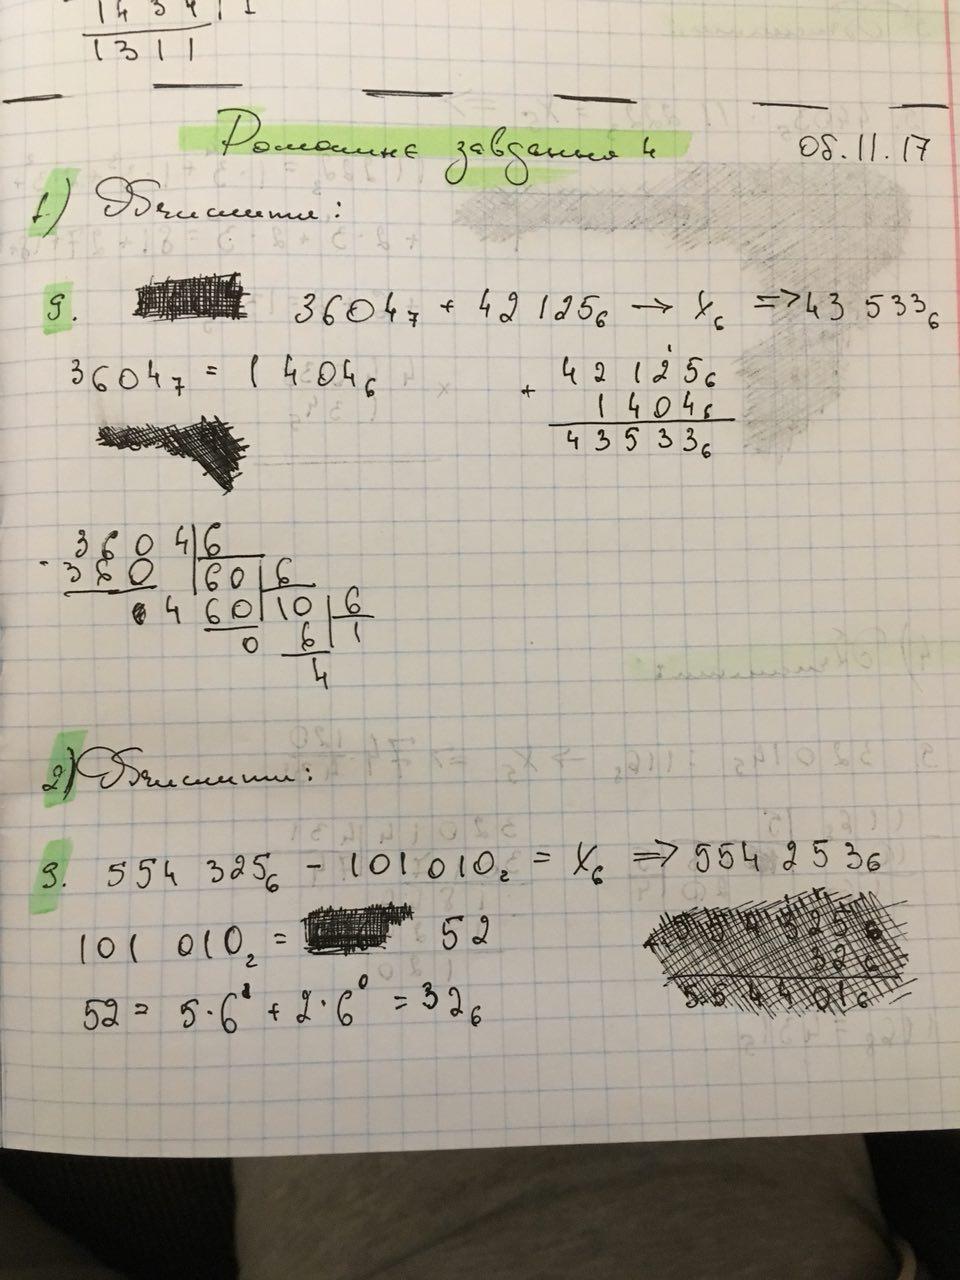 1 4 3 4 1 1
1 3 1 1
Домашнє завдання 4 08.11.17
1) Обчислити:
9. 3604₇ + 42 125₆ → X₆ => 43 533₆
3604₇ = 1 404₆
+ 42 125₆
1 404₆
4 3 5 3 3₆
- 3 6 0 4 | 6
3 6 0 | 60 | 6
4 60 | 10 | 6
0 6 | 1
4
2) Обчислити:
9. 554 325₆ - 101 010₂ = X₆ => 554 253₆
101 010₂ = 52
52 = 5·6¹ + 2·6⁰ = 32₆